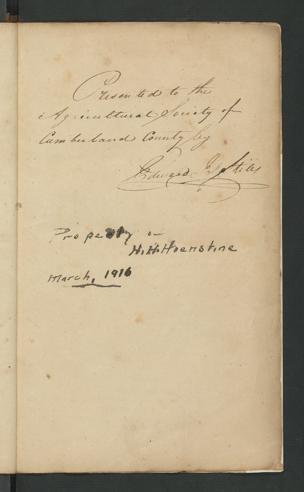 Presented to the
Agricultural Society of
Cumberland County by
Edward J. Stiles
Property of
H. H. Hoenstine
March, 1916